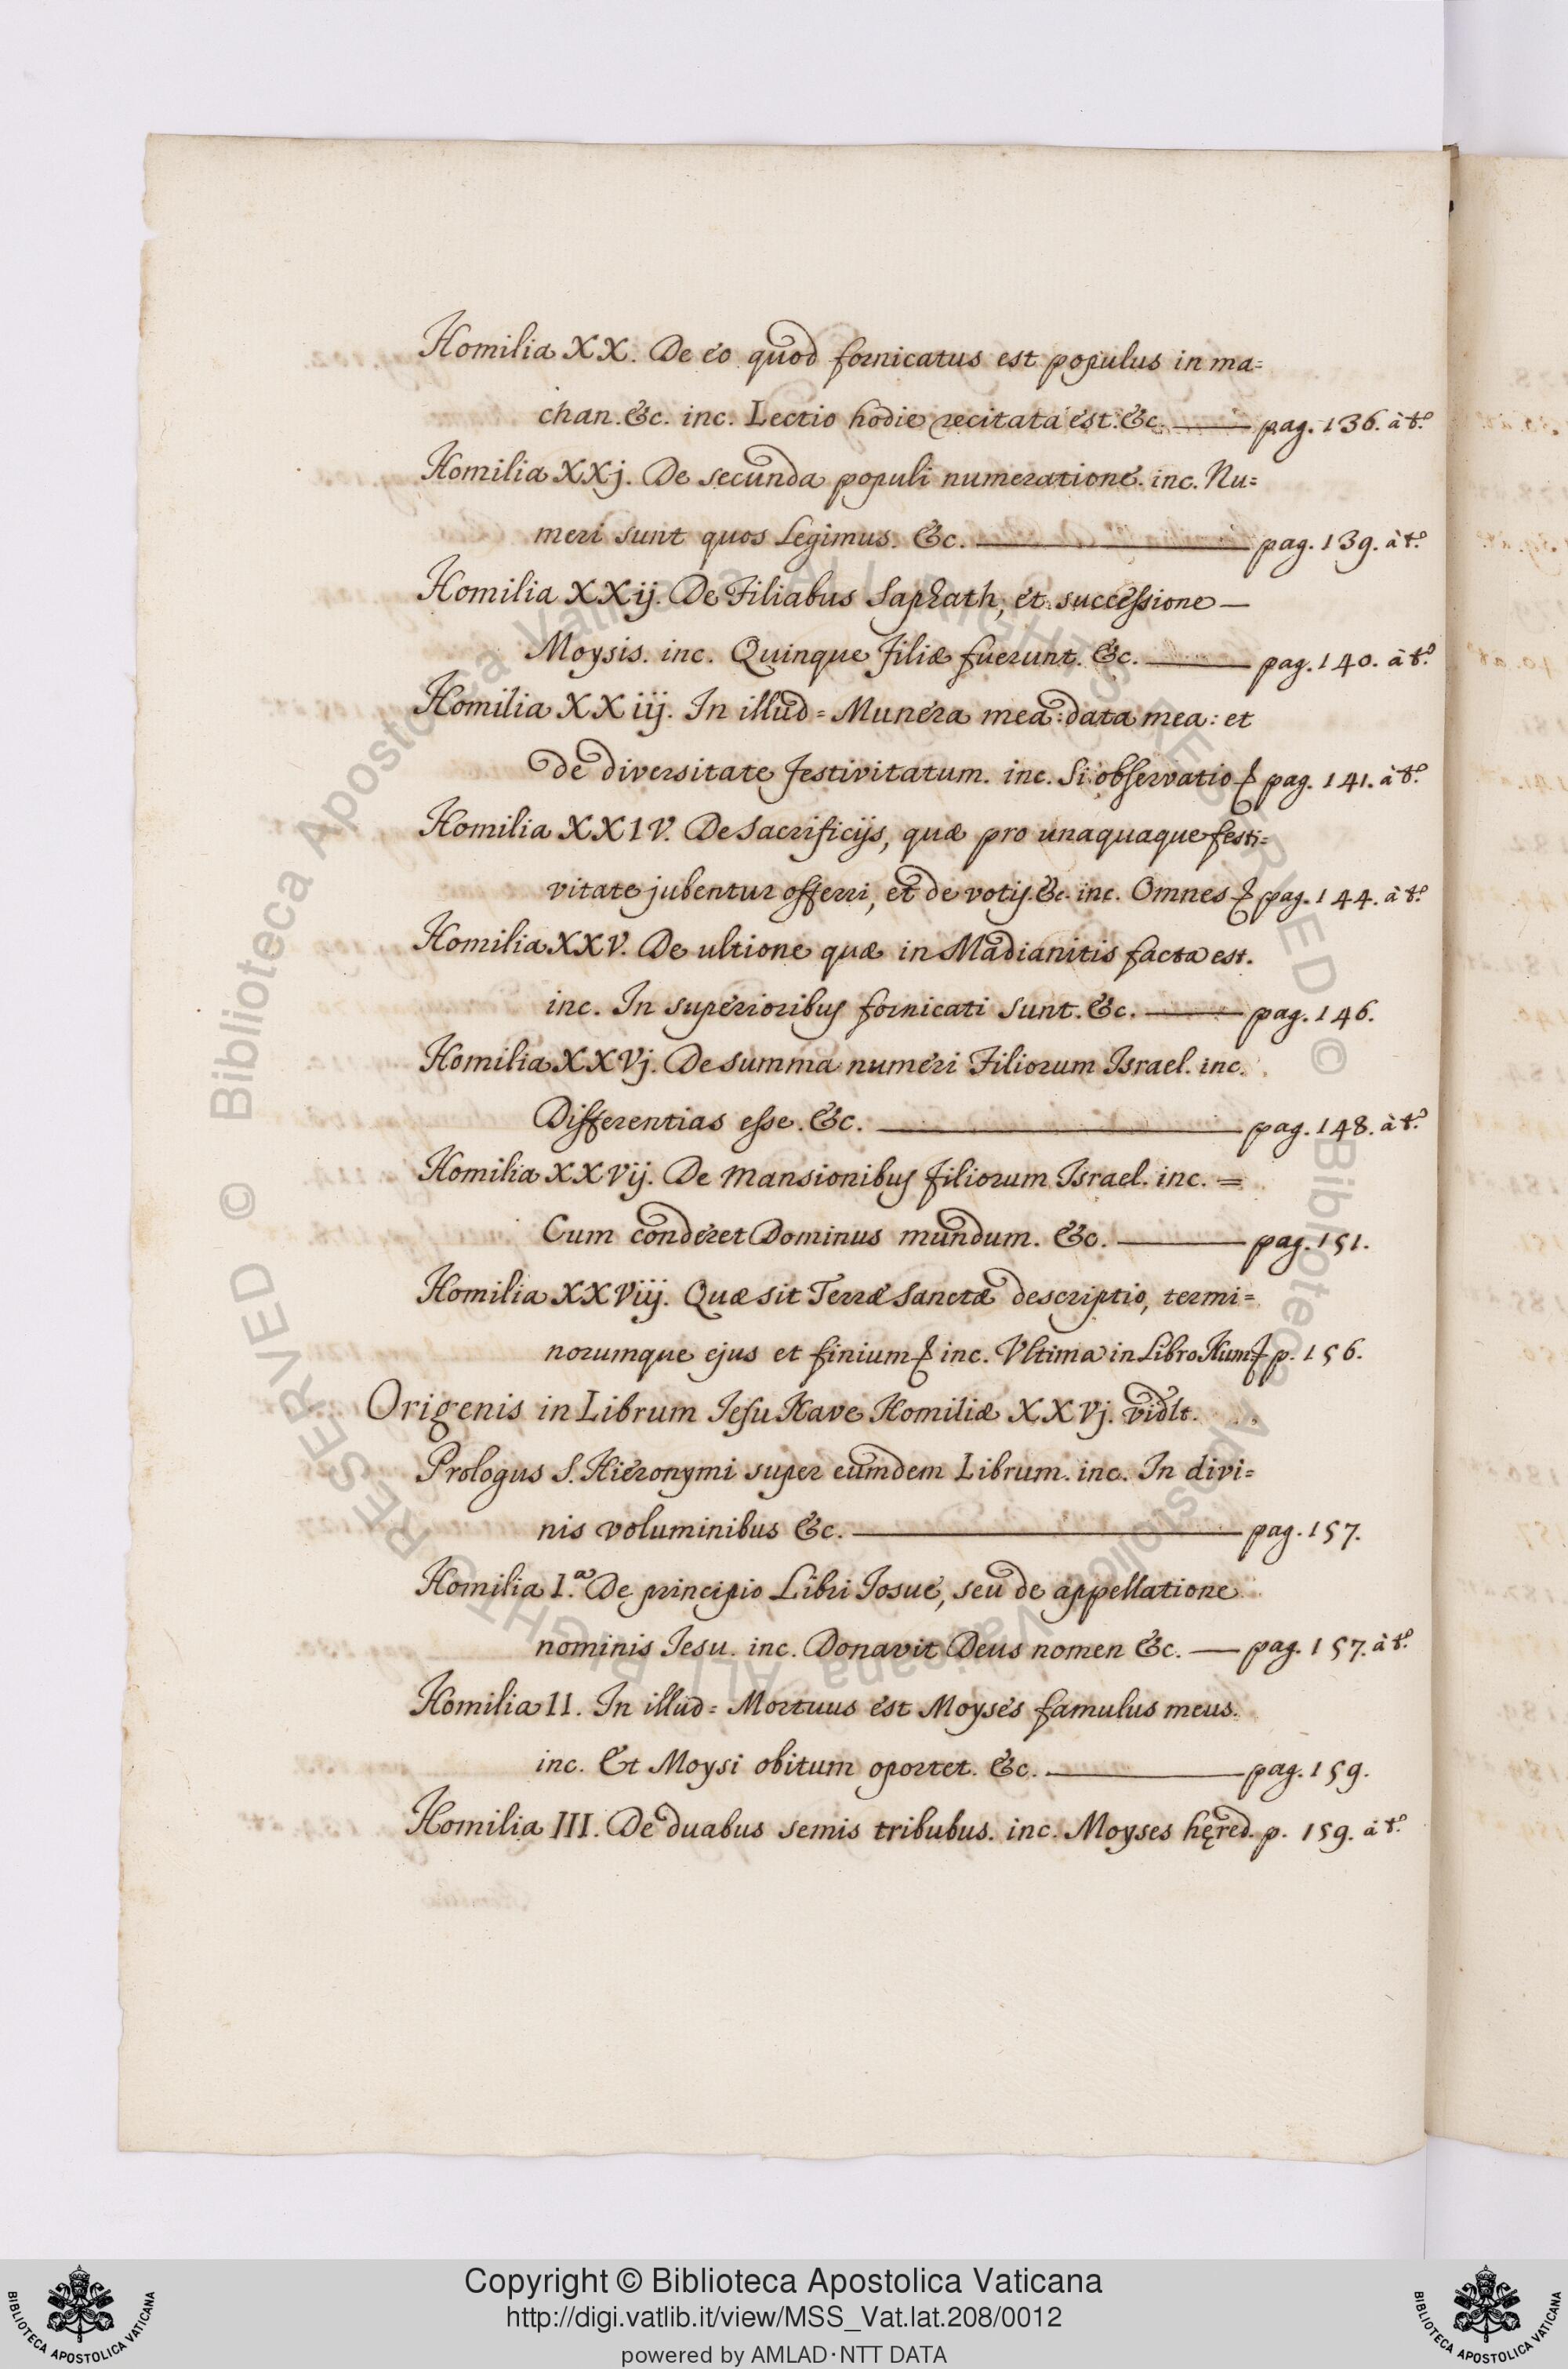 Homilia XX. De eo quod fornicatus est populus in ma=
chan. &c. inc. Lectio hodie recitata est. &c. — pag. 136. à t.º
Homilia XXj. De secunda populi numeratione. inc. Nu=
meri sunt quos Legimus. &c. — pag. 139. à t.º
Homilia XXij. De Filiabus Saphath, et successione —
Moysis. inc. Quinque Filiæ fuerunt. &c. — pag. 140. à t.º
Homilia XXiij. In illud = Munera mea: data mea: et
de diversitate Festivitatum. inc. Si observatio & pag. 141. à t.º
Homilia XXIV. De Sacrificijs, quæ pro unaquaque festi=
vitate jubentur offerri, et de votis. &c. inc. Omnes & pag. 144. à t.º
Homilia XXV. De ultione quæ in Madianitis facta est.
inc. In superioribus fornicati sunt. &c. — pag. 146.
Homilia XXVj. De summa numeri Filiorum Israel. inc.
Differentias esse. &c. — pag. 148. à t.º
Homilia XXVij. De mansionibus filiorum Israel. inc. =
Cum conderet Dominus mundum. &c. — pag. 151.
Homilia XXViij. Quæ sit Terræ Sanctæ descriptio, termi=
norumque ejus et finium & inc. Vltima in Libro Num & p. 156.
Origenis in Librum Iesu Nave Homiliæ XXVj. vidlt.
Prologus S. Hieronymi super eumdem Librum. inc. In divi=
nis voluminibus &c. — pag. 157.
Homilia I.a De principio Libri Iosue, seu de appellatione
nominis Iesu. inc. Donavit Deus nomen &c. — pag. 157. à t.º
Homilia II. In illud = Mortuus est Moyses famulus meus.
inc. Et Moysi obitum oportet. &c. — pag. 159.
Homilia III. De duabus semis tribubus. inc. Moyses hęred. p. 159. à t.º
© Biblioteca Apostolica Vaticana ALL RIGHTS RESERVED © Biblioteca Apostolica Vaticana ALL RIGHTS RESERVED
Copyright © Biblioteca Apostolica Vaticana
http://digi.vatlib.it/view/MSS_Vat.lat.208/0012
powered by AMLAD·NTT DATA
BIBLIOTECA APOSTOLICA VATICANA
BIBLIOTECA APOSTOLICA VATICANA